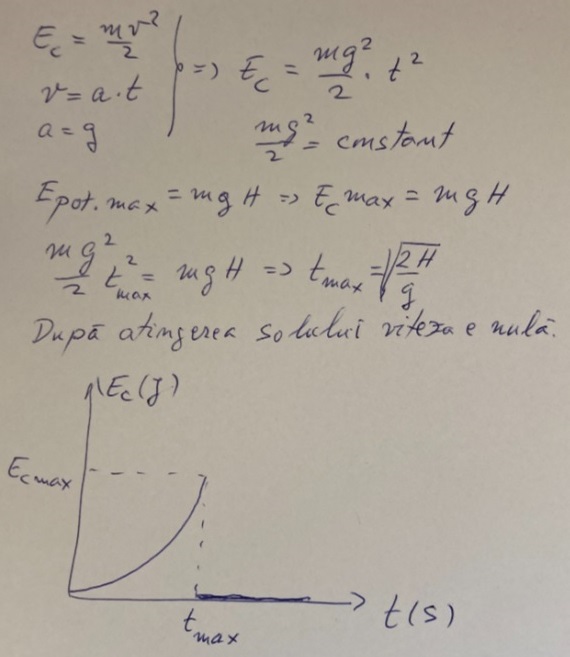 E_c = mv²/2
v = a·t
a = g
=> E_c = mg²/2 · t²
mg²/2 = constant
E_pot.max = mgH => E_c max = mgH
mg²/2 t²_max = mgH => t_max = √(2H/g)
După atingerea solului viteza e nulă.
E_c(J)
E_c max
t_max
t(s)